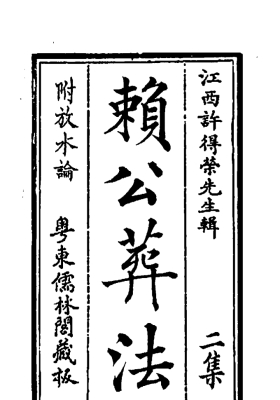 江西許得榮先生輯　二集
賴公葬法
附放水論　粤東儒林閣藏板